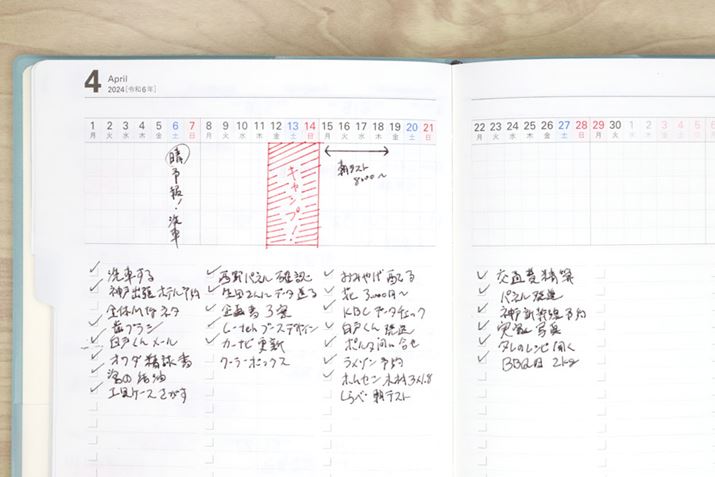 4 April
2024[令和6年]
1 2 3 4 5 6 7 8 9 10 11 12 13 14 15 16 17 18 19 20 21
月 火 水 木 金 土 日 月 火 水 木 金 土 日 月 火 水 木 金 土 日
22 23 24 25 26 27 28 29 30 1 2 3 4 5
月 火 水 木 金 土 日 月 火 水 木 金 土 日
晴予報!洗車
キャンプ!
朝テスト
8:00〜
洗車する
神戸出張ホテル予約
全体MTGネタ
歯ブラシ
白戸くんメール
オワダ精談書
工具ケースさがす
西野パネル確認
生田さんにデータ送る
企画書3案
L-techブースデザイン
カーナビ更新
クーラーボックス
おみやげ配る
花 3,000円〜
KBCデータチェック
白戸くん
ポルタ問い合せ
ラメゾン予約
ホムセン木材3×1.8
しらべ 朝テスト
交通費精算
パネル発送
神戸新幹線予約
実家写真
タレのレシピ聞く
BBQ肉 2kg